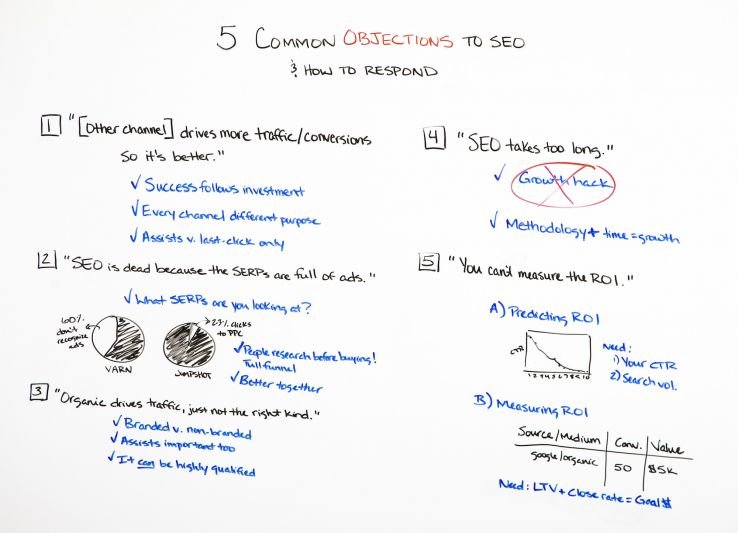 5 COMMON OBJECTIONS TO SEO
& HOW TO RESPOND
1 "[Other channel] drives more traffic/conversions
so it's better."
✓ Success follows investment
✓ Every channel different purpose
✓ Assists v. last-click only
2 "SEO is dead because the SERPs are full of ads."
✓ What SERPs are you looking at?
60%
don't
recognize
ads
VARN
2.3% clicks
to PPC
JUMPSHOT
✓ People research before buying!
Full funnel
✓ Better together
3 "Organic drives traffic, just not the right kind."
✓ Branded v. non-branded
✓ Assists important too
✓ It can be highly qualified
4 "SEO takes too long."
✓ Growth hack
✓ Methodology + time = growth
5 "You can't measure the ROI."
A) Predicting ROI
CTR
1 2 3 4 5 6 7 8 9 10
Need:
1) Your CTR
2) Search vol.
B) Measuring ROI
Source/Medium Conv. Value
google/organic 50 $5K
Need: LTV + Close rate = Goal $